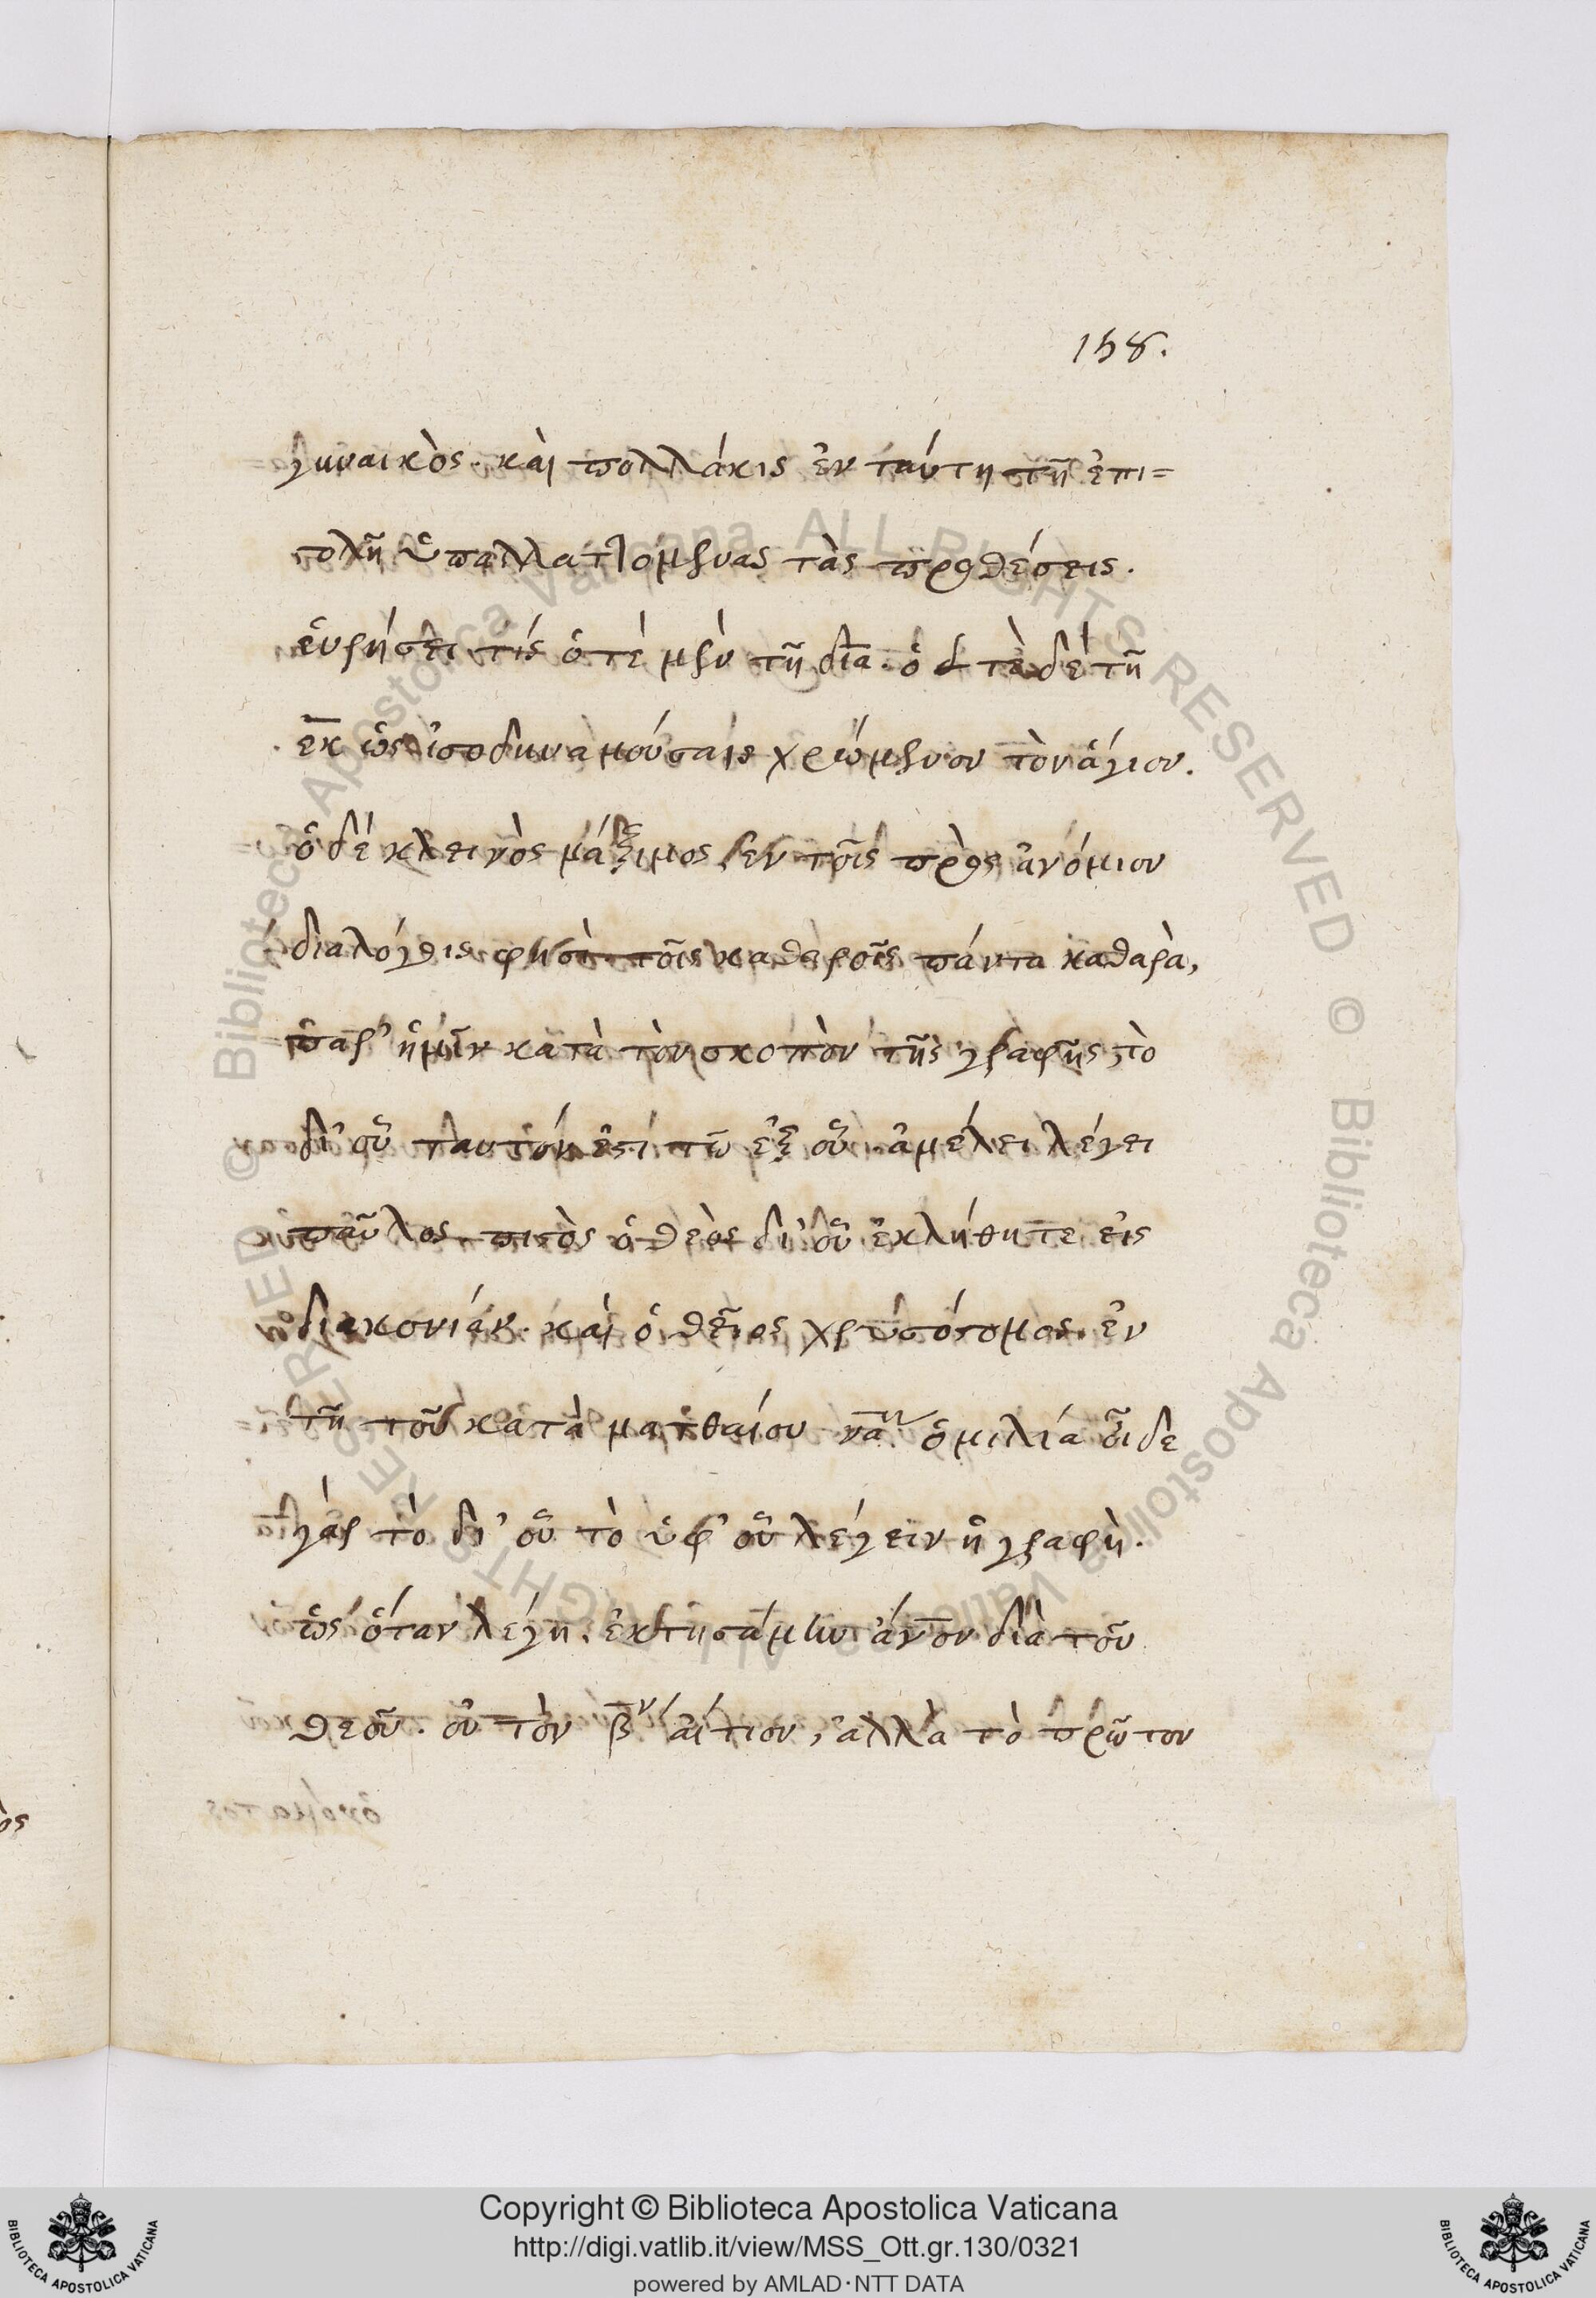 158.
γυναικὸς. καὶ πολλάκις ἐν ταύτῃ τῆ ἐπι=
στολῆ ὑπαλλαττομένας τὰς προθέσεις.
εὑρήσει τίς ὁτὲ μὲν τῆ δια. ὁτὲ δὲ τῆ
εκ ὡς ἰσοδυναμούσαις χρώμενον τὸν ἅγιον.
ὁ δέ κλεινὸς μάξιμος ἐν τοῖς πρὸς ἀνόμιον
διαλόγοις φησὶ. τοῖς καθαροῖς πάντα καθαρὰ,
παρ' ἡμῖν κατὰ τὸν σκοπὸν τῆς γραφῆς, τὸ
δι' οὗ ταυτόν ἐστί τῶ ἐξ οὗ. ἀμέλει λέγει
παῦλος. πιστὸς ὁ θεὸς δι' οὗ ἐκλήθητε εἰς
διακονίαν. καὶ ὁ θεῖος χρυσόστομος. ἐν
τῆ τοῦ κατὰ ματθαίου να. ὁμιλία οἶδε
γὰρ τὸ δι' οὗ τὸ ὑφ' οὗ λέγειν ἡ γραφὴ.
ὡς ὅταν λέγη. ἐκτησάμην ἄνον διὰ τοῦ
θεοῦ. οὐ τὸν βν αἴτιον, ἀλλὰ τὸ πρῶτον
Copyright © Biblioteca Apostolica Vaticana
http://digi.vatlib.it/view/MSS_Ott.gr.130/0321
powered by AMLAD·NTT DATA
BIBLIOTECA APOSTOLICA VATICANA
BIBLIOTECA APOSTOLICA VATICANA
© Biblioteca Apostolica Vaticana ALL RIGHTS RESERVED © Biblioteca Apostolica Vaticana ALL RIGHTS RESERVED